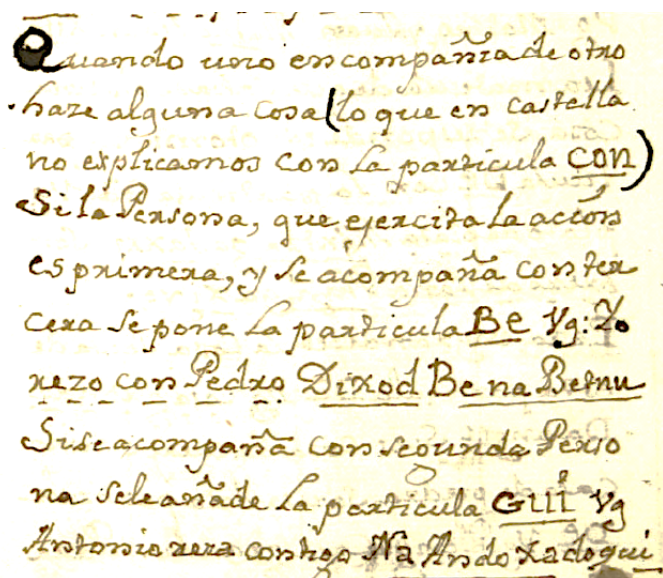 Quando uno en compañia de otro
haze alguna cosa (lo que en castella
no explicamos con la particula con)
Si la Persona, que ejercita la acion
es primera, y se acompaña con ter
cera se pone la particula Be Vg: Yo
rezo con Pedro Dixod Be na Betnu
Si se acompaña con segunda Perso
na se le añade la particula Gui Vg
Antonio reza contigo Na Ando xadogui